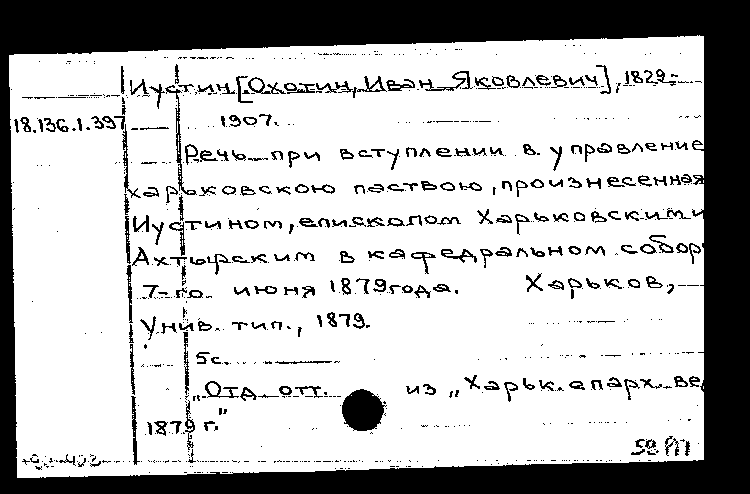 Иустин[Охотин, Иван Яковлевич], 1829-
18.136.1.397 1907.
Речь при вступлении в управление
харьковскою паствою, произнесенная
Иустином, епископом Харьковским и
Ахтырским в кафедральном собор
7-го июня 1879 года. Харьков,
Унив. тип., 1879.
5с.
„Отд. отт. из „Харьк. епарх. ве
1879 г."